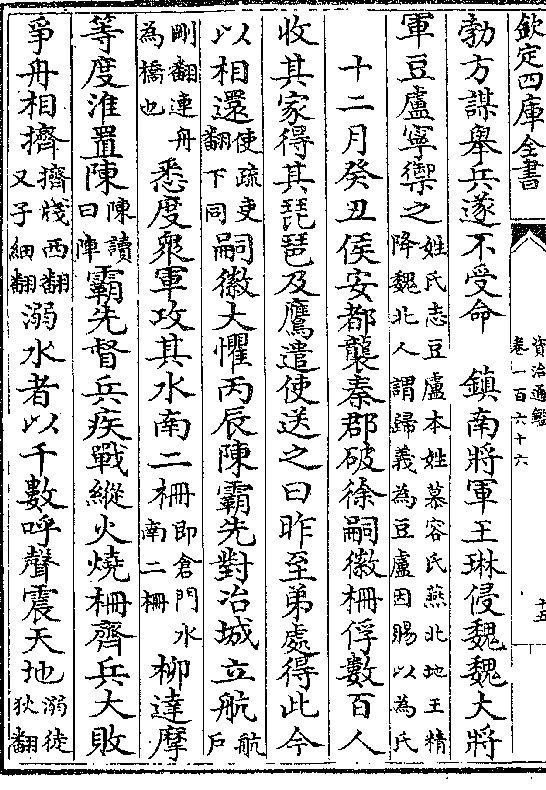 欽定四庫全書
資治通鑑
卷一百六十六
十五
勃方謀舉兵遂不受命　鎮南將軍王琳侵魏魏大將
軍豆盧寧禦之姓氏志豆盧本姓慕容氏燕北地王精降魏北人謂歸義為豆盧因賜以為氏
十二月癸丑侯安都襲秦郡破徐嗣徽柵俘數百人
收其家得其琵琶及鷹遣使送之曰昨至弟處得此今
以相還使疏吏翻下同嗣徽大懼丙辰陳霸先對冶城立航航戶
剛翻連舟為橋也悉度衆軍攻其水南二柵即倉門水南二柵柳達摩
等度淮置陳陳讀曰陣霸先督兵疾戰縱火燒柵齊兵大敗
爭舟相擠擠牋西翻又子細翻溺水者以千數呼聲震天地溺徒狄翻